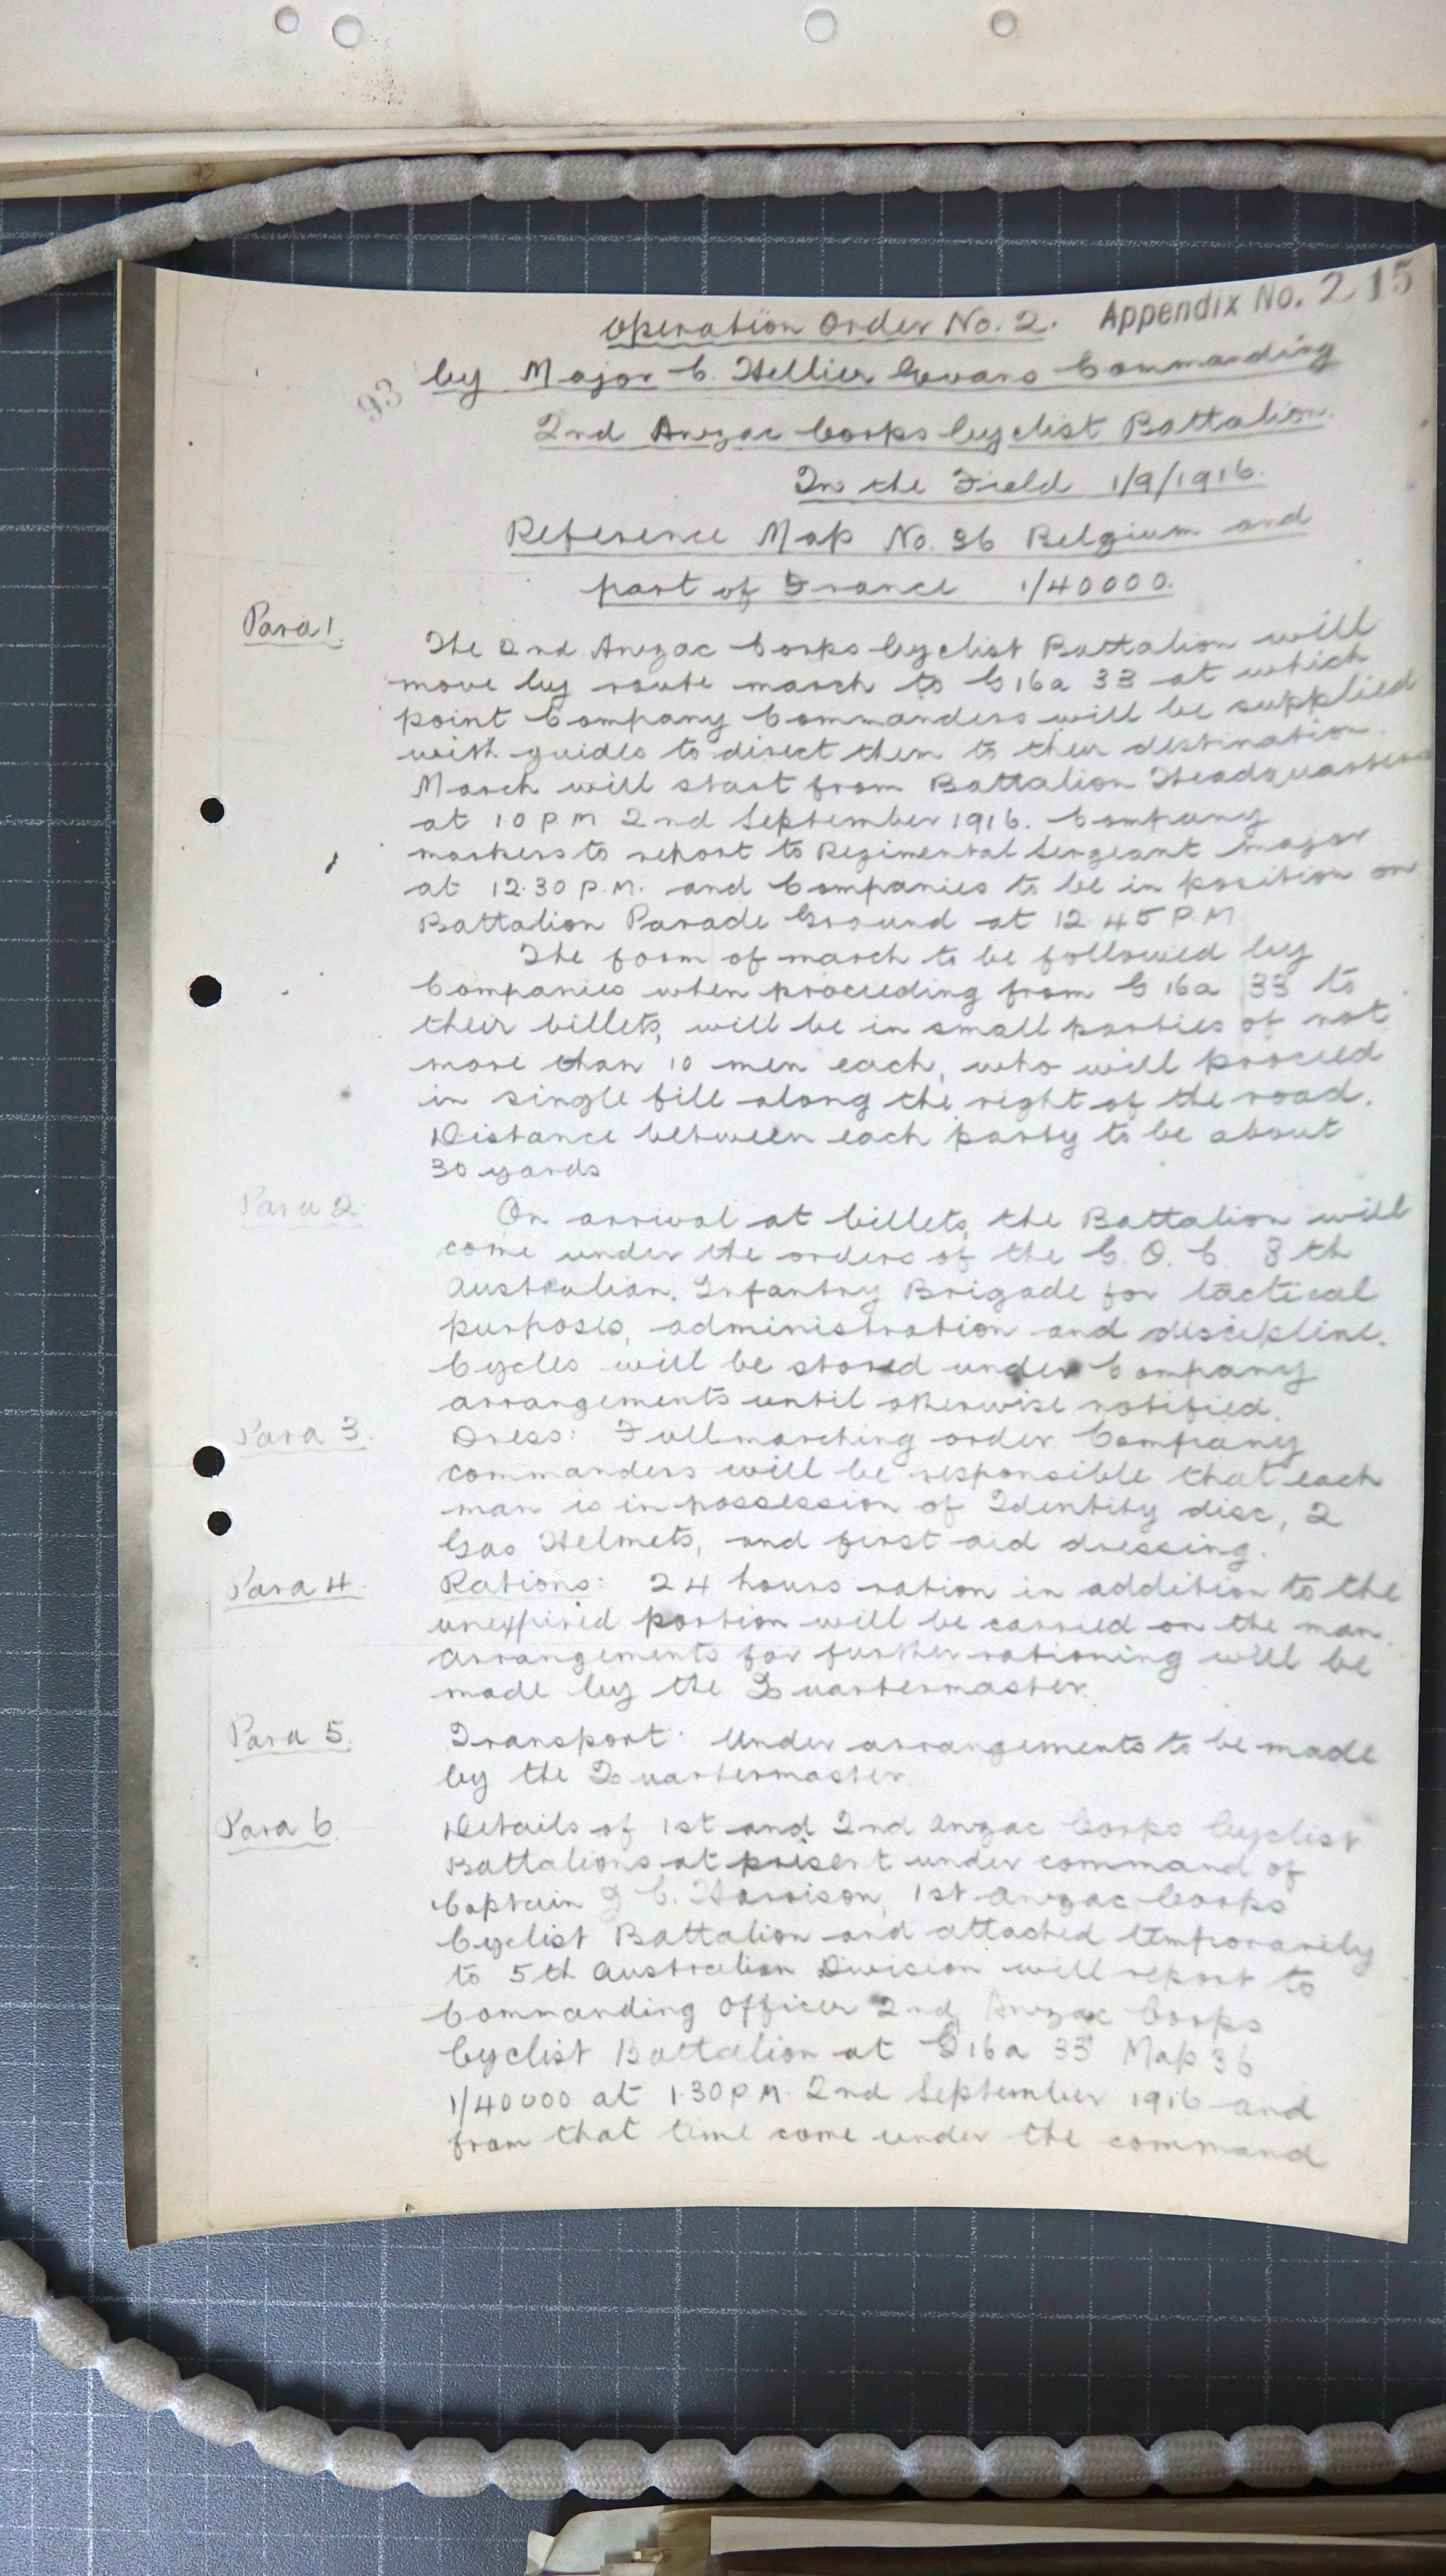 Operation Order No. 2. Appendix No. 215
93 by Major C. Hellier Evans Commanding
2nd Anzac Corps Cyclist Battalion.
In the Field 1/9/1916.
Reference Map No. 36 Belgium and
part of France 1/40000.
Para 1. The 2nd Anzac Corps Cyclist Battalion will
move by route march to G16a 33 at which
point Company Commanders will be supplied
with guides to direct them to their destination.
March will start from Battalion Headquarters
at 10 P.M 2nd September 1916. Company
markers to report to Regimental Sergeant Major
at 12.30 P.M. and Companies to be in position on
Battalion Parade Ground at 12 45 P.M
The form of march to be followed by
Companies when proceeding from G 16a 33 to
their billets, will be in small parties of not
more than 10 men each, who will proceed
in single file along the right of the road.
Distance between each party to be about
30 yards
Para 2 On arrival at billets, the Battalion will
come under the orders of the G. O. C. 8th
Australian. Infantry Brigade for tactical
purposes, administration and discipline.
Cycles will be stored under Company
arrangements until otherwise notified.
Para 3. Dress: Full marching order Company
commanders will be responsible that each
man is in possession of Identity disc, 2
Gas Helmets, and first aid dressing.
Para 4. Rations: 24 hours ration in addition to the
unexpired portion will be carried on the man.
Arrangements for further rationing will be
made by the Quartermaster.
Para 5. Transport: Under arrangements to be made
by the Quartermaster.
Para 6. Details of 1st and 2nd Anzac Corps Cyclist
Battalions at present under command of
Captain C. Harrison, 1st Anzac Corps
Cyclist Battalion and attached temporarily
to 5th Australian Division will report to
Commanding Officer 2nd Anzac Corps
Cyclist Battalion at G16a 33 Map 36
1/40000 at 1.30 P.M. 2nd September 1916 and
from that time come under the command